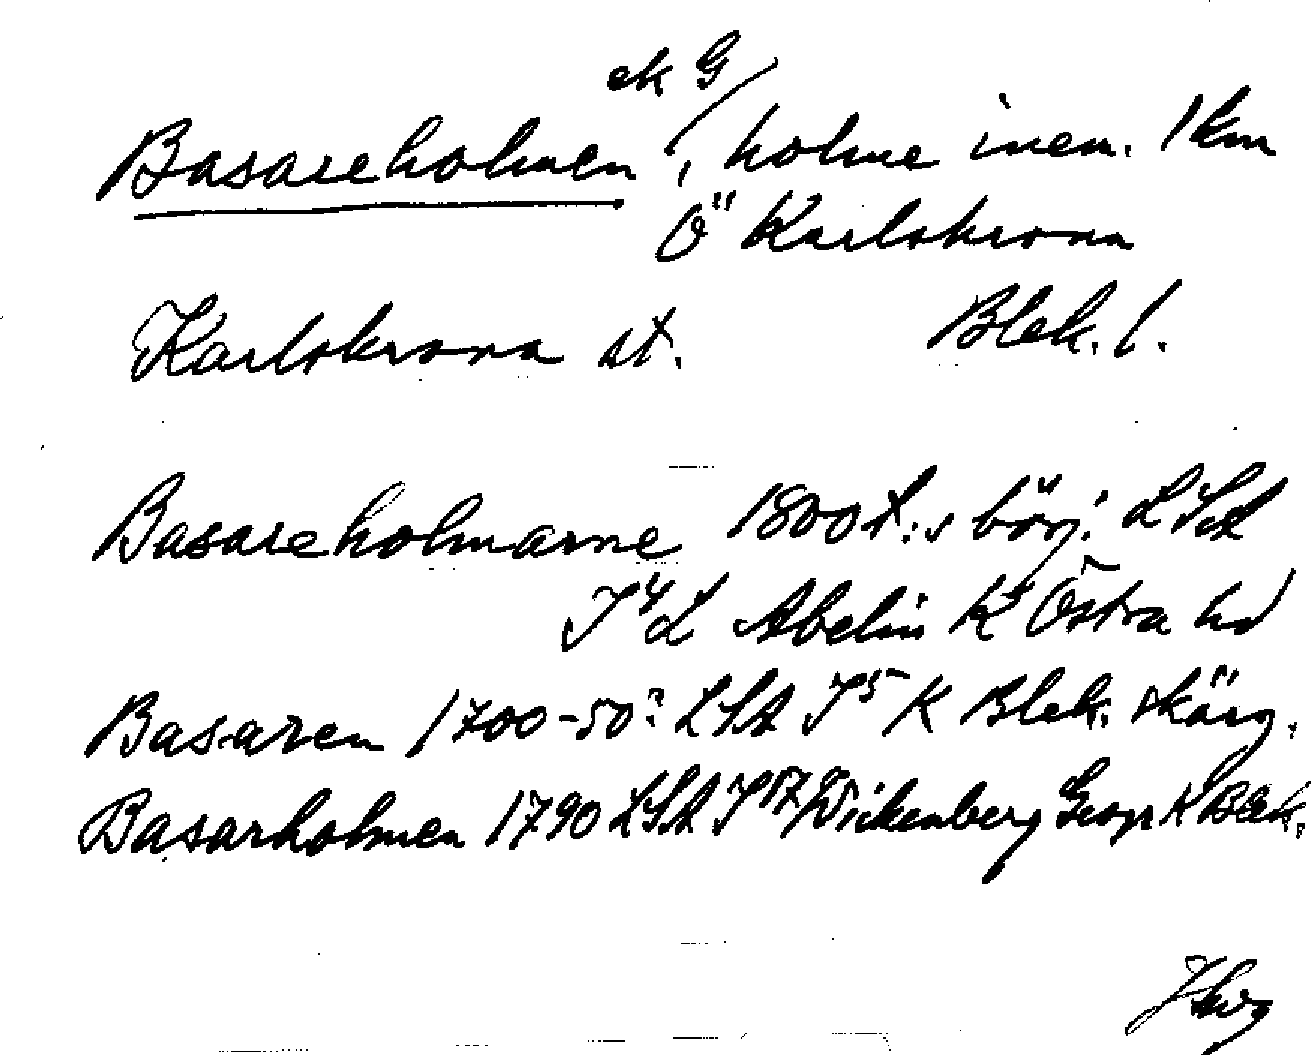 ek G
Basareholmen, holme inem. 1 km
Ö Karlskrona
Karlskrona st. Blek. l.
Basareholmarne 1800 t.:s börj. LSA
J⁴ L Abelin K Östra hd
Basaren 1700-50? LSA J⁵ K Blek. skärg.
Basarholmen 1790 LSA J¹⁷ Wickenberg Geogr K Blek.